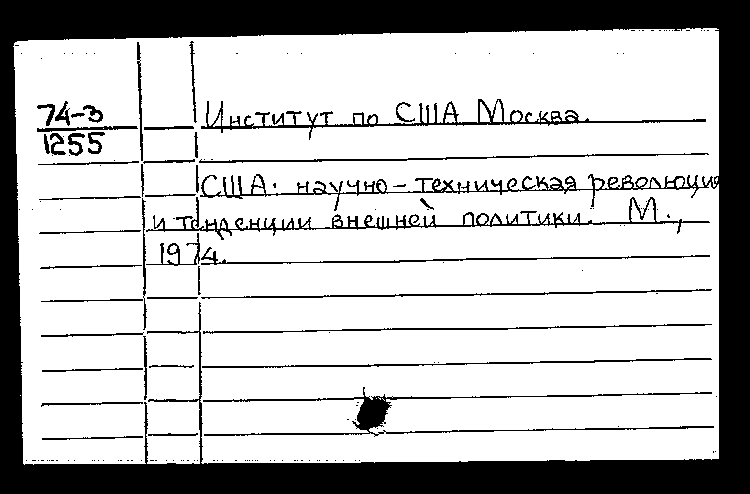 74-3
1255
Институт по США Москва.
США: научно-техническая революция
и тенденции внешней политики. М.,
1974.